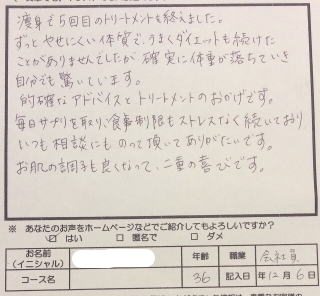 痩身で5回目のトリートメントを終えました。
ずっとやせにくい体質で、うまくダイエットも続けた
ことがありませんでしたが、確実に体重が落ちていき
自分でも驚いています。
的確なアドバイスとトリートメントのおかげです。
毎日サプリを取り、食事制限もストレスなく続いており
いつも相談にものって頂いてありがたいです。
お肌の調子も良くなって、二重の喜びです。
※ あなたのお声をホームページなどでご紹介してもよろしいですか?
☑ はい □ 匿名で □ ダメ
お名前 (イニシャル) 年齢 職業 会社員
コース名 36 記入日 年12月6日